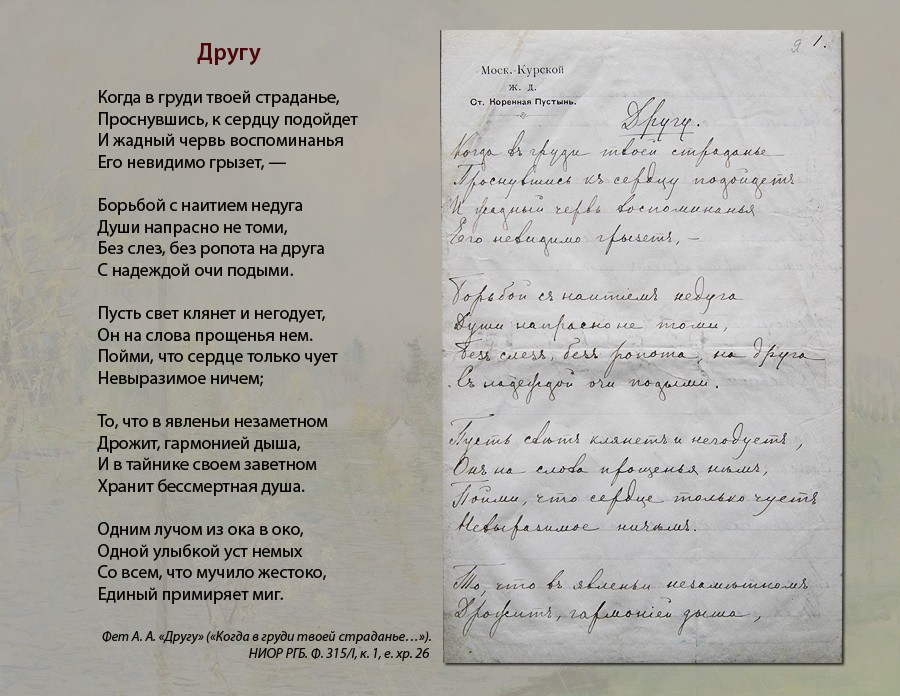 Другу
Когда в груди твоей страданье,
Проснувшись, к сердцу подойдет
И жадный червь воспоминанья
Его невидимо грызет, —
Борьбой с наитием недуга
Души напрасно не томи,
Без слез, без ропота на друга
С надеждой очи подыми.
Пусть свет клянет и негодует,
Он на слова прощенья нем.
Пойми, что сердце только чует
Невыразимое ничем;
То, что в явленьи незаметном
Дрожит, гармонией дыша,
И в тайнике своем заветном
Хранит бессмертная душа.
Одним лучом из ока в око,
Одной улыбкой уст немых
Со всем, что мучило жестоко,
Единый примиряет миг.
Фет А. А. «Другу» («Когда в груди твоей страданье…»).
НИОР РГБ. Ф. 315/I, к. 1, е. хр. 26
1.
Моск.-Курской
ж. д.
Ст. Коренная Пустынь.
Другу.
Когда въ груди твоей страданье
Проснувшись къ сердцу подойдетъ
И жадный червь воспоминанья
Его невидимо грызетъ, —
Борьбой съ наитіемъ недуга
Души напрасно не томи,
Безъ слезъ, безъ ропота, на друга
Съ надеждой очи подыми.
Пусть свѣтъ клянетъ и негодуетъ,
Онъ на слова прощенья нѣмъ,
Пойми, что сердце только чуетъ
Невыразимое ничѣмъ.
То, что въ явленьи незамѣтномъ
Дрожитъ, гармоніей дыша,